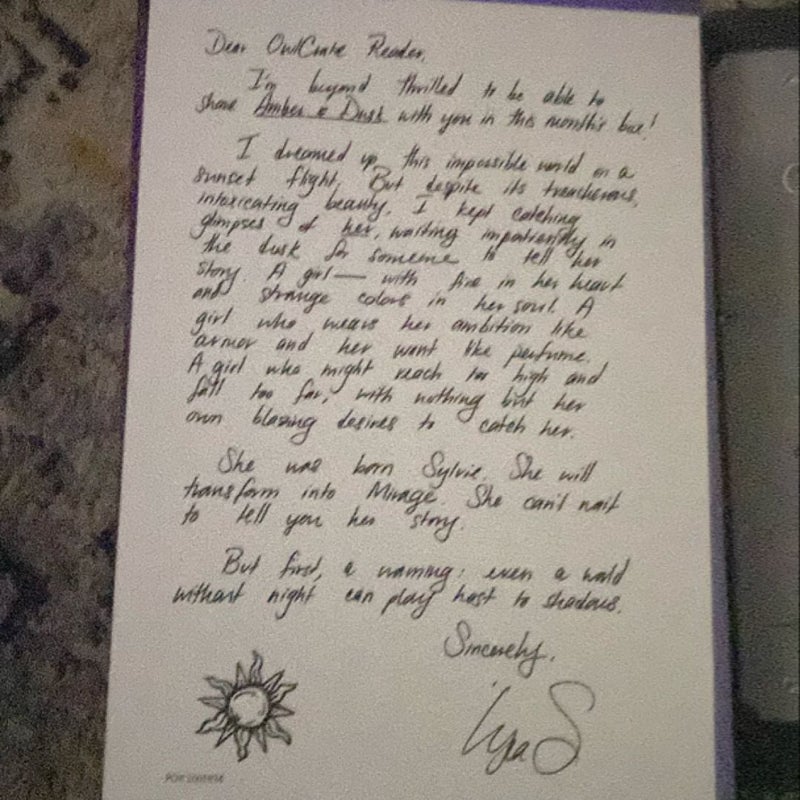 Dear OwlCrate Reader,
I'm beyond thrilled to be able to
share Amber & Dusk with you in this month's box!
I dreamed up this impossible world on a
sunset flight. But despite its treacherous,
intoxicating beauty, I kept catching
glimpses of her, waiting impatiently in
the dusk for someone to tell her
story. A girl — with fire in her heart
and strange colors in her soul. A
girl who wears her ambition like
armor and her want like perfume.
A girl who might reach too high and
fall too far, with nothing but her
own blazing desires to catch her.
She was born Sylvie. She will
transform into Mirage. She can't wait
to tell you her story.
But first, a warning: even a world
without night can play host to shadows.
Sincerely,
Lyra S